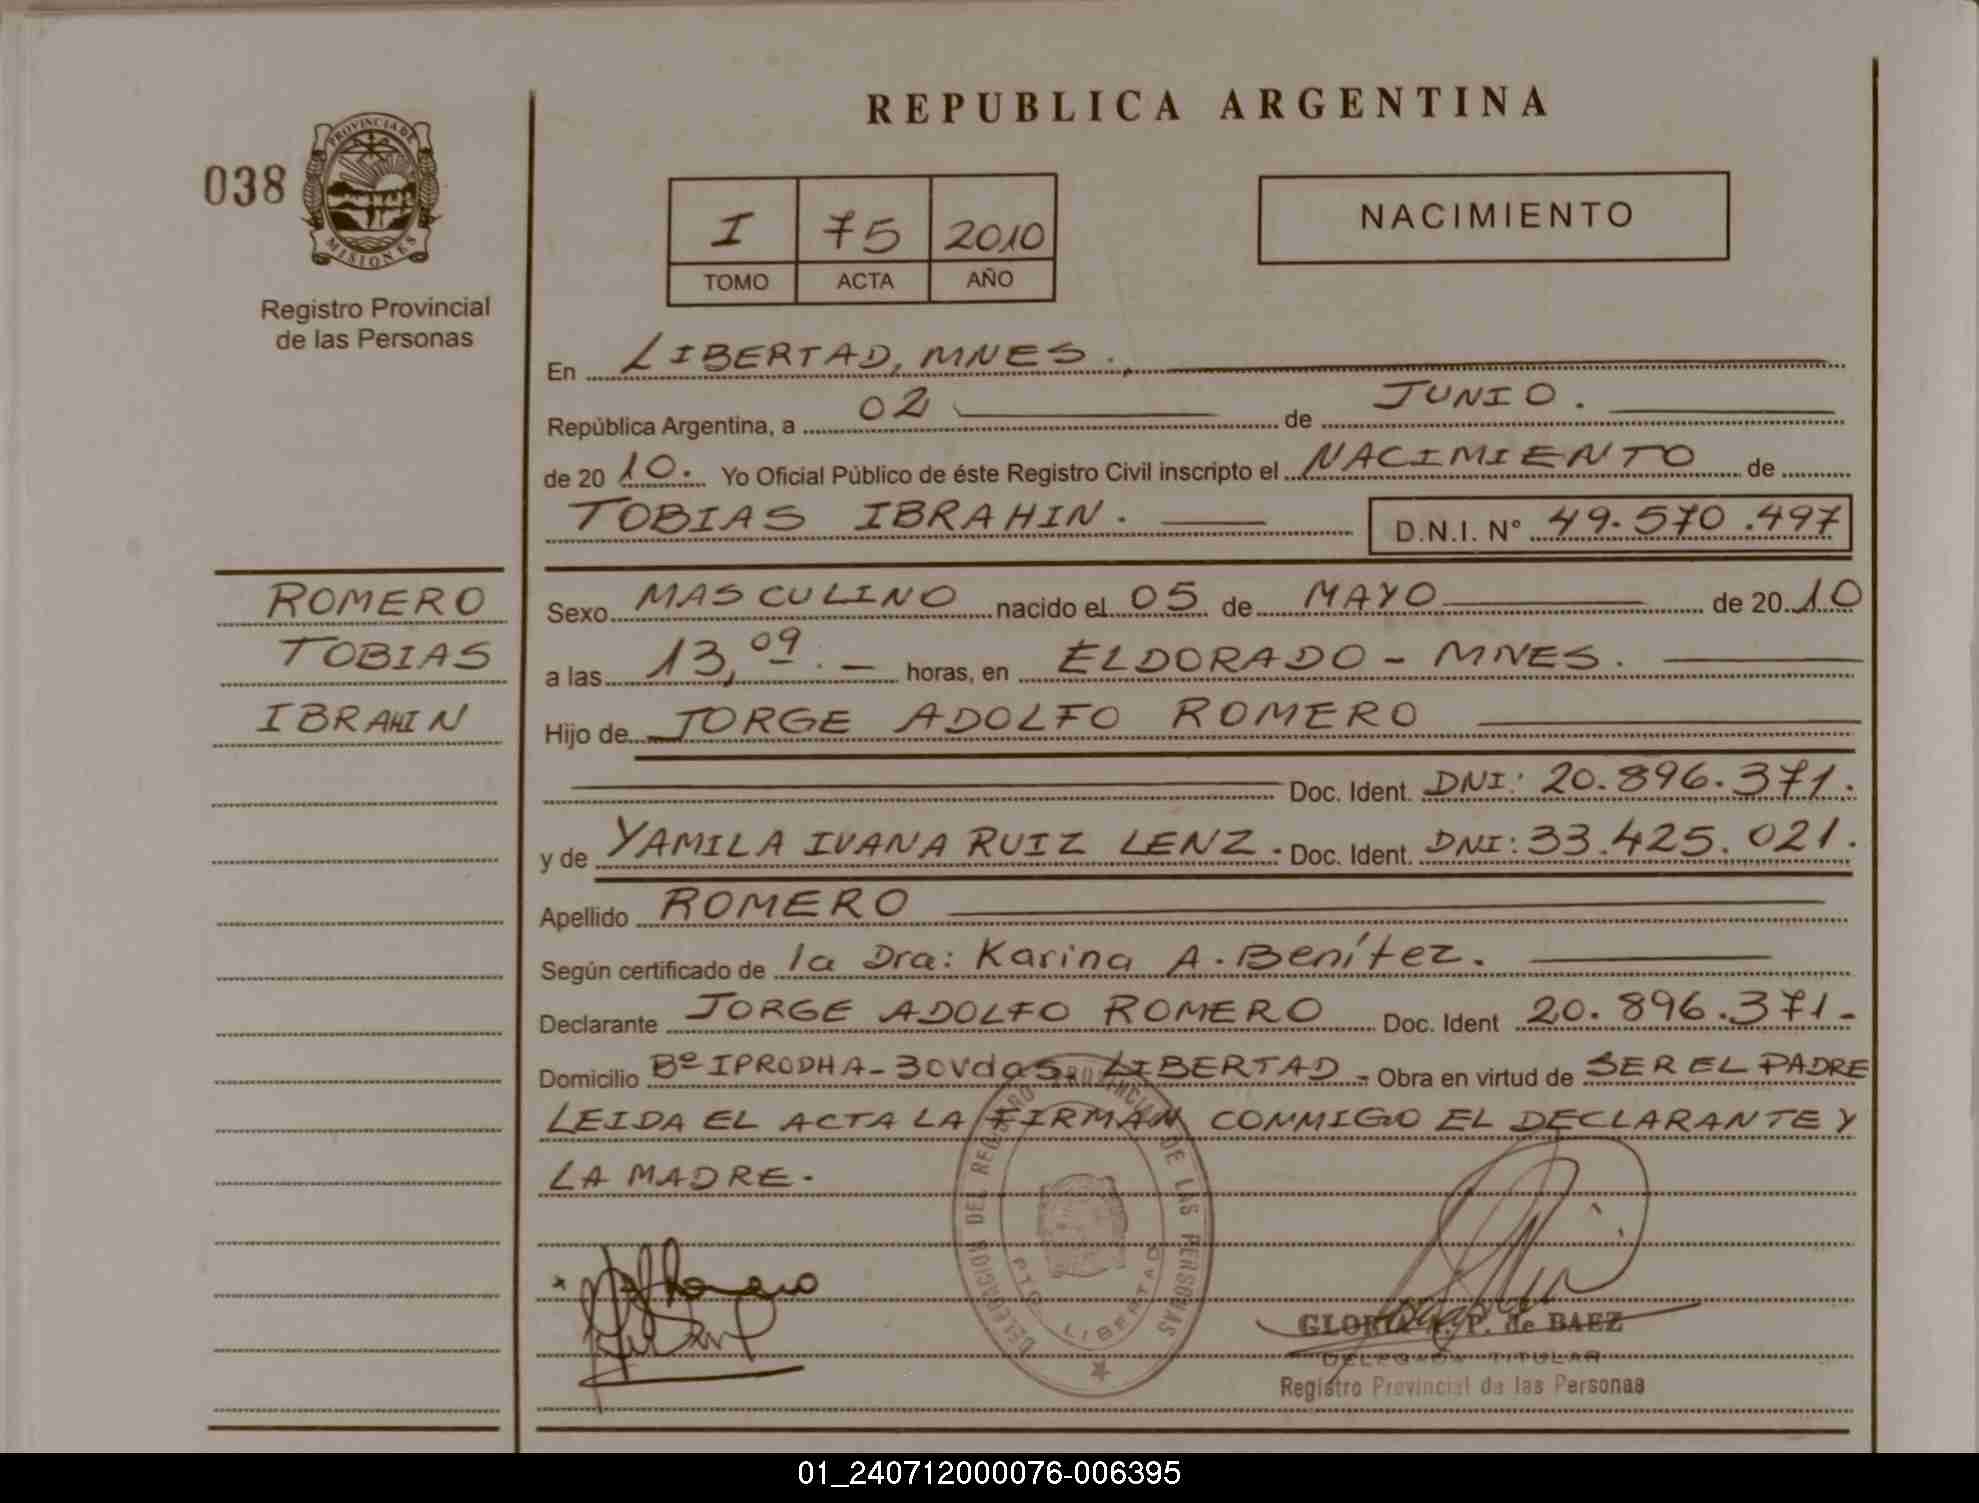 REPUBLICA ARGENTINA
038
PROVINCIA DE
MISIONES
Registro Provincial
de las Personas
I 75 2010
TOMO ACTA AÑO
NACIMIENTO
En LIBERTAD, MNES.
República Argentina, a 02 de JUNIO.
de 20 10. Yo Oficial Público de éste Registro Civil inscripto el NACIMIENTO de
TOBIAS IBRAHIN. D.N.I. Nº 49.570.497
ROMERO
TOBIAS
IBRAHIN
Sexo MASCULINO nacido el 05 de MAYO de 20 10
a las 13,09. horas, en ELDORADO - MNES.
Hijo de JORGE ADOLFO ROMERO
Doc. Ident. DNI: 20.896.371.
y de YAMILA IVANA RUIZ LENZ. Doc. Ident. DNI: 33.425.021.
Apellido ROMERO
Según certificado de la Dra: Karina A. Benítez.
Declarante JORGE ADOLFO ROMERO Doc. Ident 20.896.371-
Domicilio Bº IPRODHA-30Vdas. LIBERTAD - Obra en virtud de SER EL PADRE
LEIDA EL ACTA LA FIRMAN CONMIGO EL DECLARANTE Y
LA MADRE.
DELEGACION DEL REGISTRO PROVINCIAL DE LAS PERSONAS
PTO. LIBERTAD
GLORIA P. de BAEZ
DELEGADA TITULAR
Registro Provincial de las Personas
01_240712000076-006395